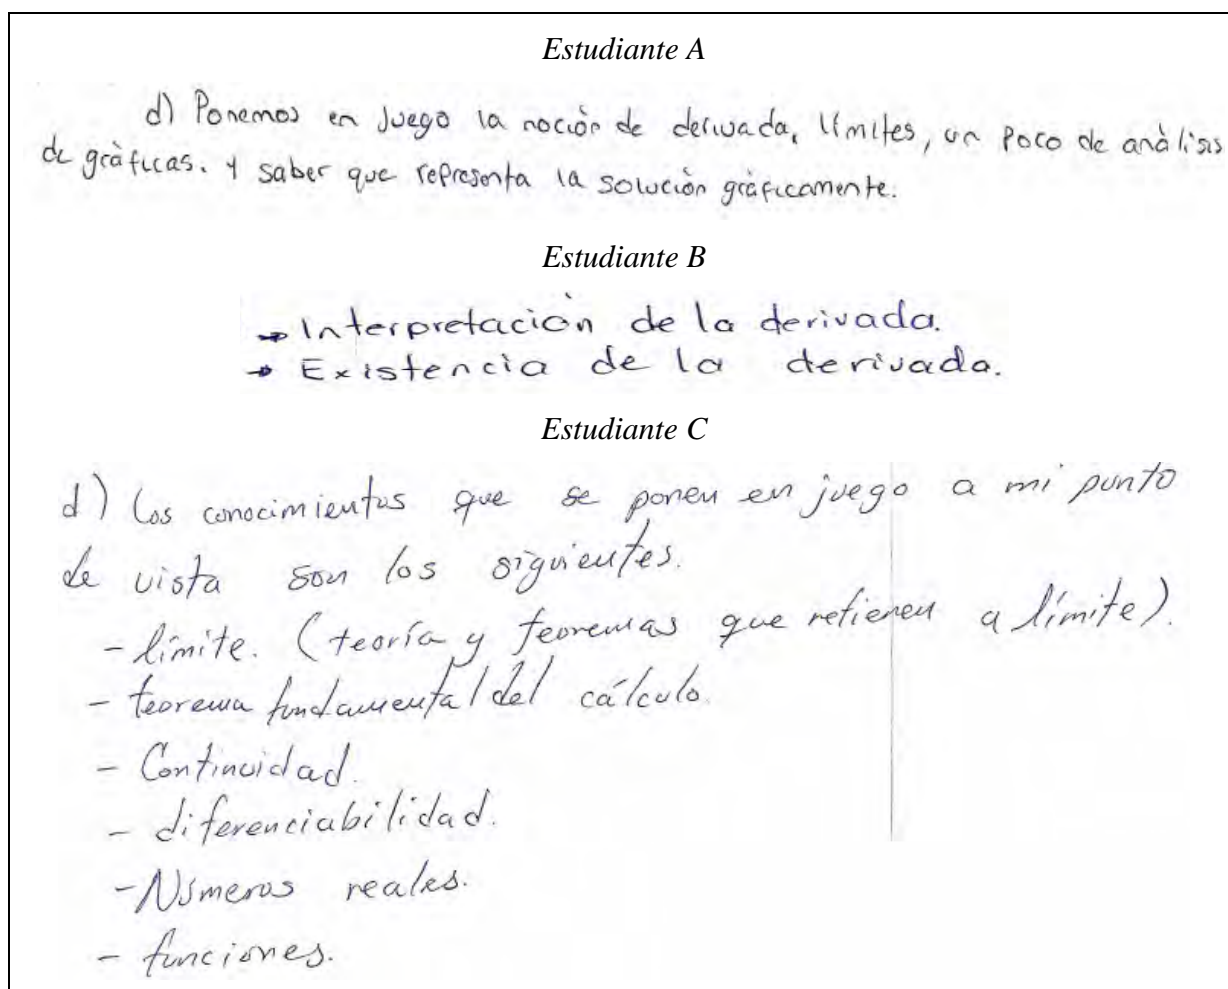 Estudiante A
d) Ponemos en juego la noción de derivada, límites, un poco de anàlisis
de gràficas. y saber que representa la solución gràficamente.
Estudiante B
→ Interpretación de la derivada.
→ Existencia de la derivada.
Estudiante C
d) Los conocimientos que se ponen en juego a mi punto
de vista son los siguientes.
- límite. (teoría y teoremas que refieren a límite).
- teorema fundamental del cálculo.
- Continuidad.
- diferenciabilidad.
- Números reales.
- funciones.